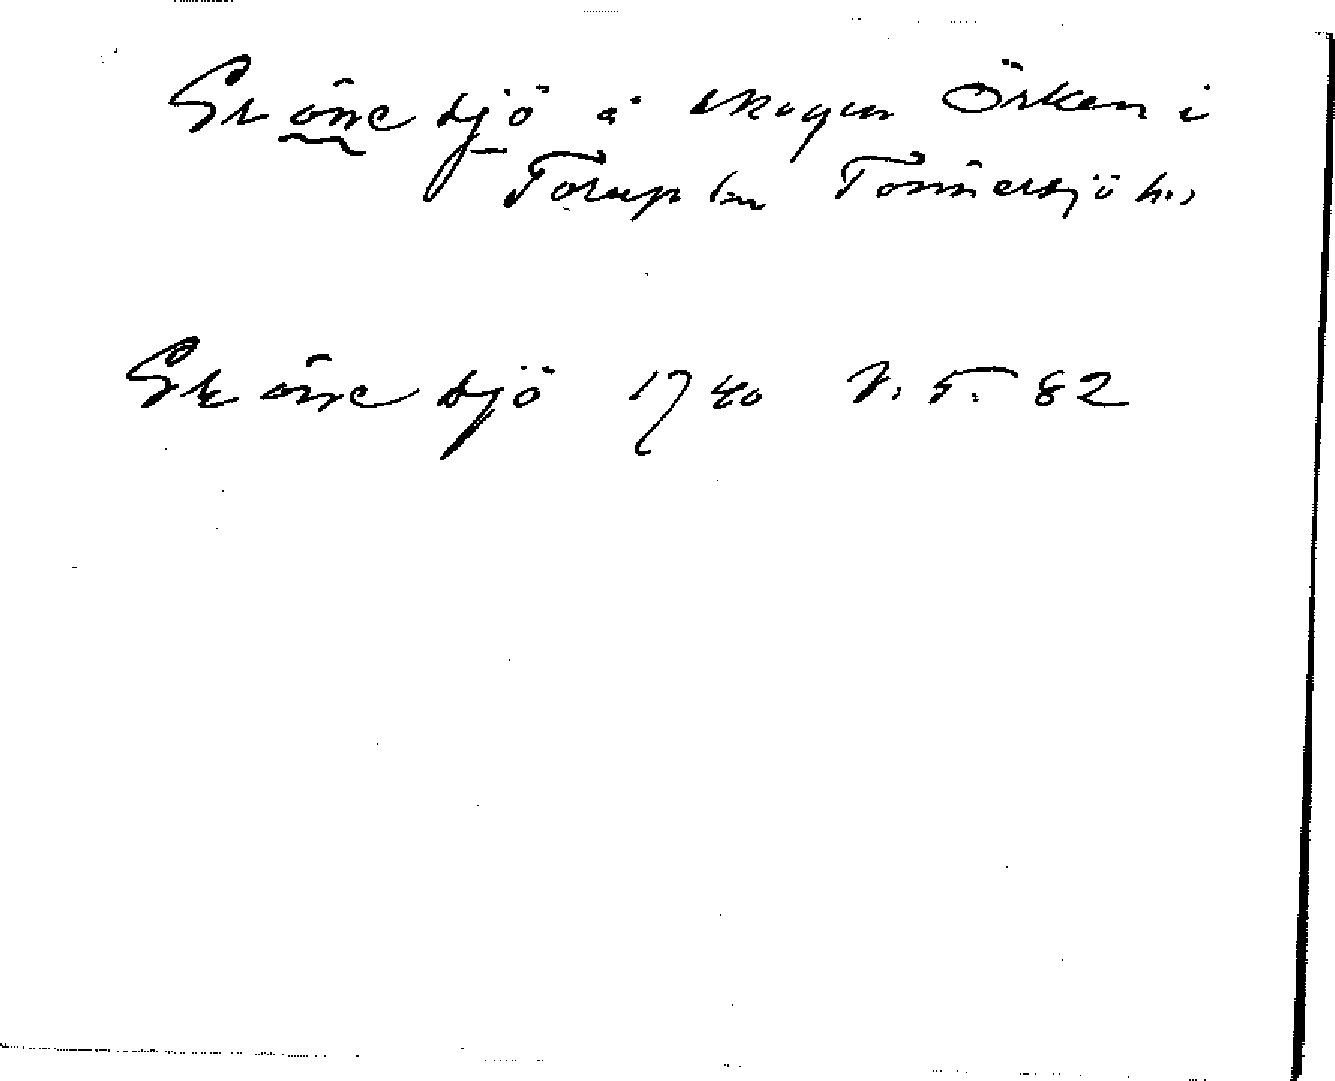 Skönesjö å skogen Örken i
Torup sn Tönnersjö h.,
Skönesjö 1740 82